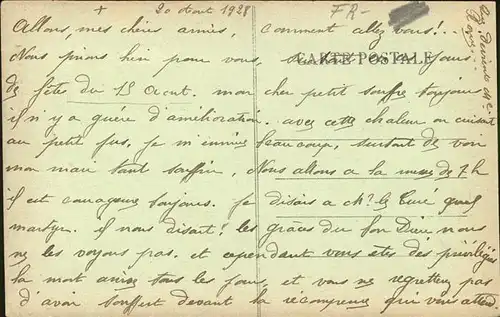 + 20 Aout 1928 FR-
Allons, mes chères amies, comment allez vous!...
Nous prions bien pour vous, jours
CARTE POSTALE
de fêtes du 15 Aout. mon cher petit souffre toujours
il n'y a guère d'amélioration. avec cette chaleur on cuisait
au petit feu, je m'ennuie beaucoup, surtout de voir
mon mari tant souffrir. Nous allons a la messe de 7h
il est courageux toujours. je disais a Mr le Curé quel
martyr. il nous disait! les grâces du Bon Dieu nous
ne les voyons pas. et cependant vous êtes des privilégiés
la mort arrive tous les jours, et vous ne regrettez pas
d'avoir souffert devant la récompense qui vous attend